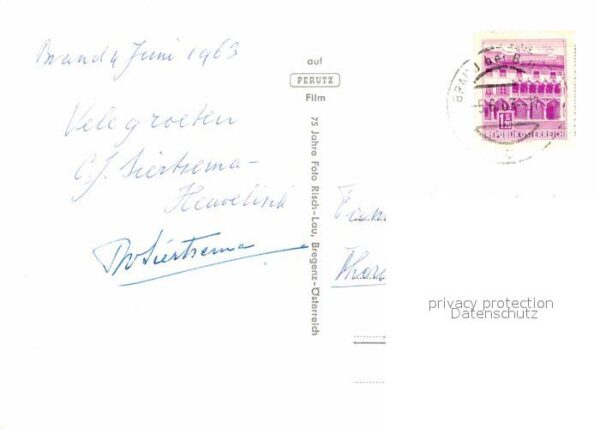 Brand 4 Juni 1963
Vele groeten
C.J. Siertsema-
Heuvelink
Siertsema
auf
PERUTZ
Film
75 Jahre Foto Risch-Lau, Bregenz-Österreich
BRAND bei
REPUBLIK ÖSTERREICH
privacy protection
Datenschutz